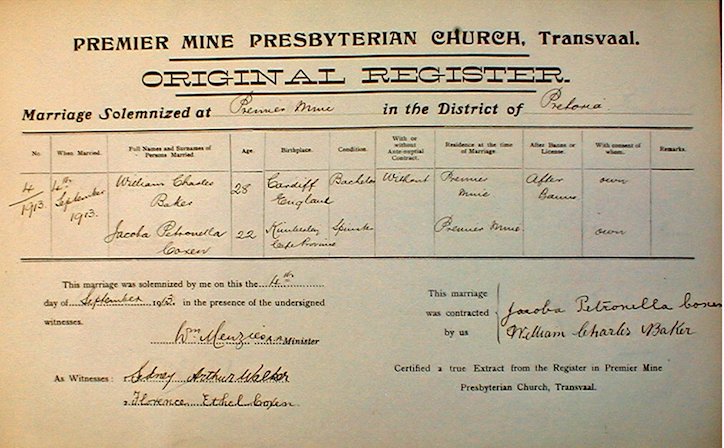 PREMIER MINE PRESBYTERIAN CHURCH, Transvaal.
ORIGINAL REGISTER.
Marriage Solemnized at Premier Mine in the District of Pretoria.
No. When Married. Full Names and Surnames of Persons Married. Age. Birthplace. Condition. With or without Ante-nuptial Contract. Residence at the time of Marriage. After Banns or License. With consent of whom. Remarks.
4/1913. 4th September 1913. William Charles Baker 28 Cardiff England Bachelor Without Premier Mine After Banns own
Jacoba Petronella Coxen 22 Kimberley Cape Province Spinster Premier Mine. own
This marriage was solemnized by me on this the 4th
day of September 1913. in the presence of the undersigned
witnesses.
Wm Menzies Minister
This marriage
was contracted
by us
Jacoba Petronella Coxen
William Charles Baker
As Witnesses: 1 Sidney Arthur Walker
2 Florence Ethel Coxen
Certified a true Extract from the Register in Premier Mine
Presbyterian Church, Transvaal.